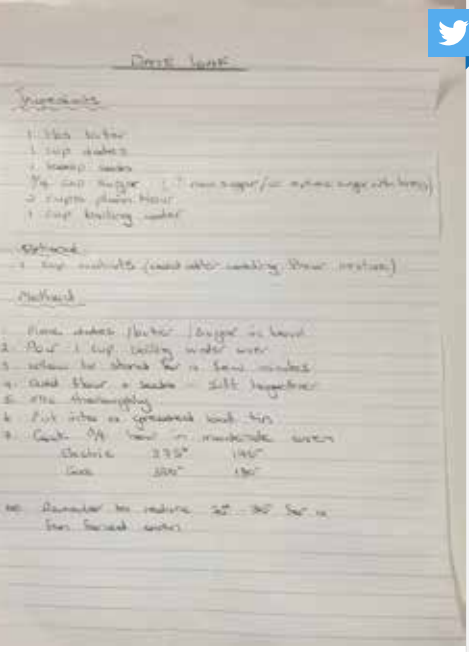 Date Loaf
Ingredients
1 tbs butter
1 cup dates
1 soda
3/4 cup sugar ( raw sugar/
2 cups plain flour
1 cup boiling water
Optional
1 cup walnuts
Method
1. Place dates /butter /sugar in bowl
2. Pour 1 cup boiling water over
3. Allow to stand for a few minutes
4. Add flour + soda - sift together
5. Mix thoroughly
6. Put into a greased loaf tin
7. Cook 3/4 hour in moderate oven
Electric 375° 190°
Gas 350° 180°
Remember to reduce for a
fan forced oven